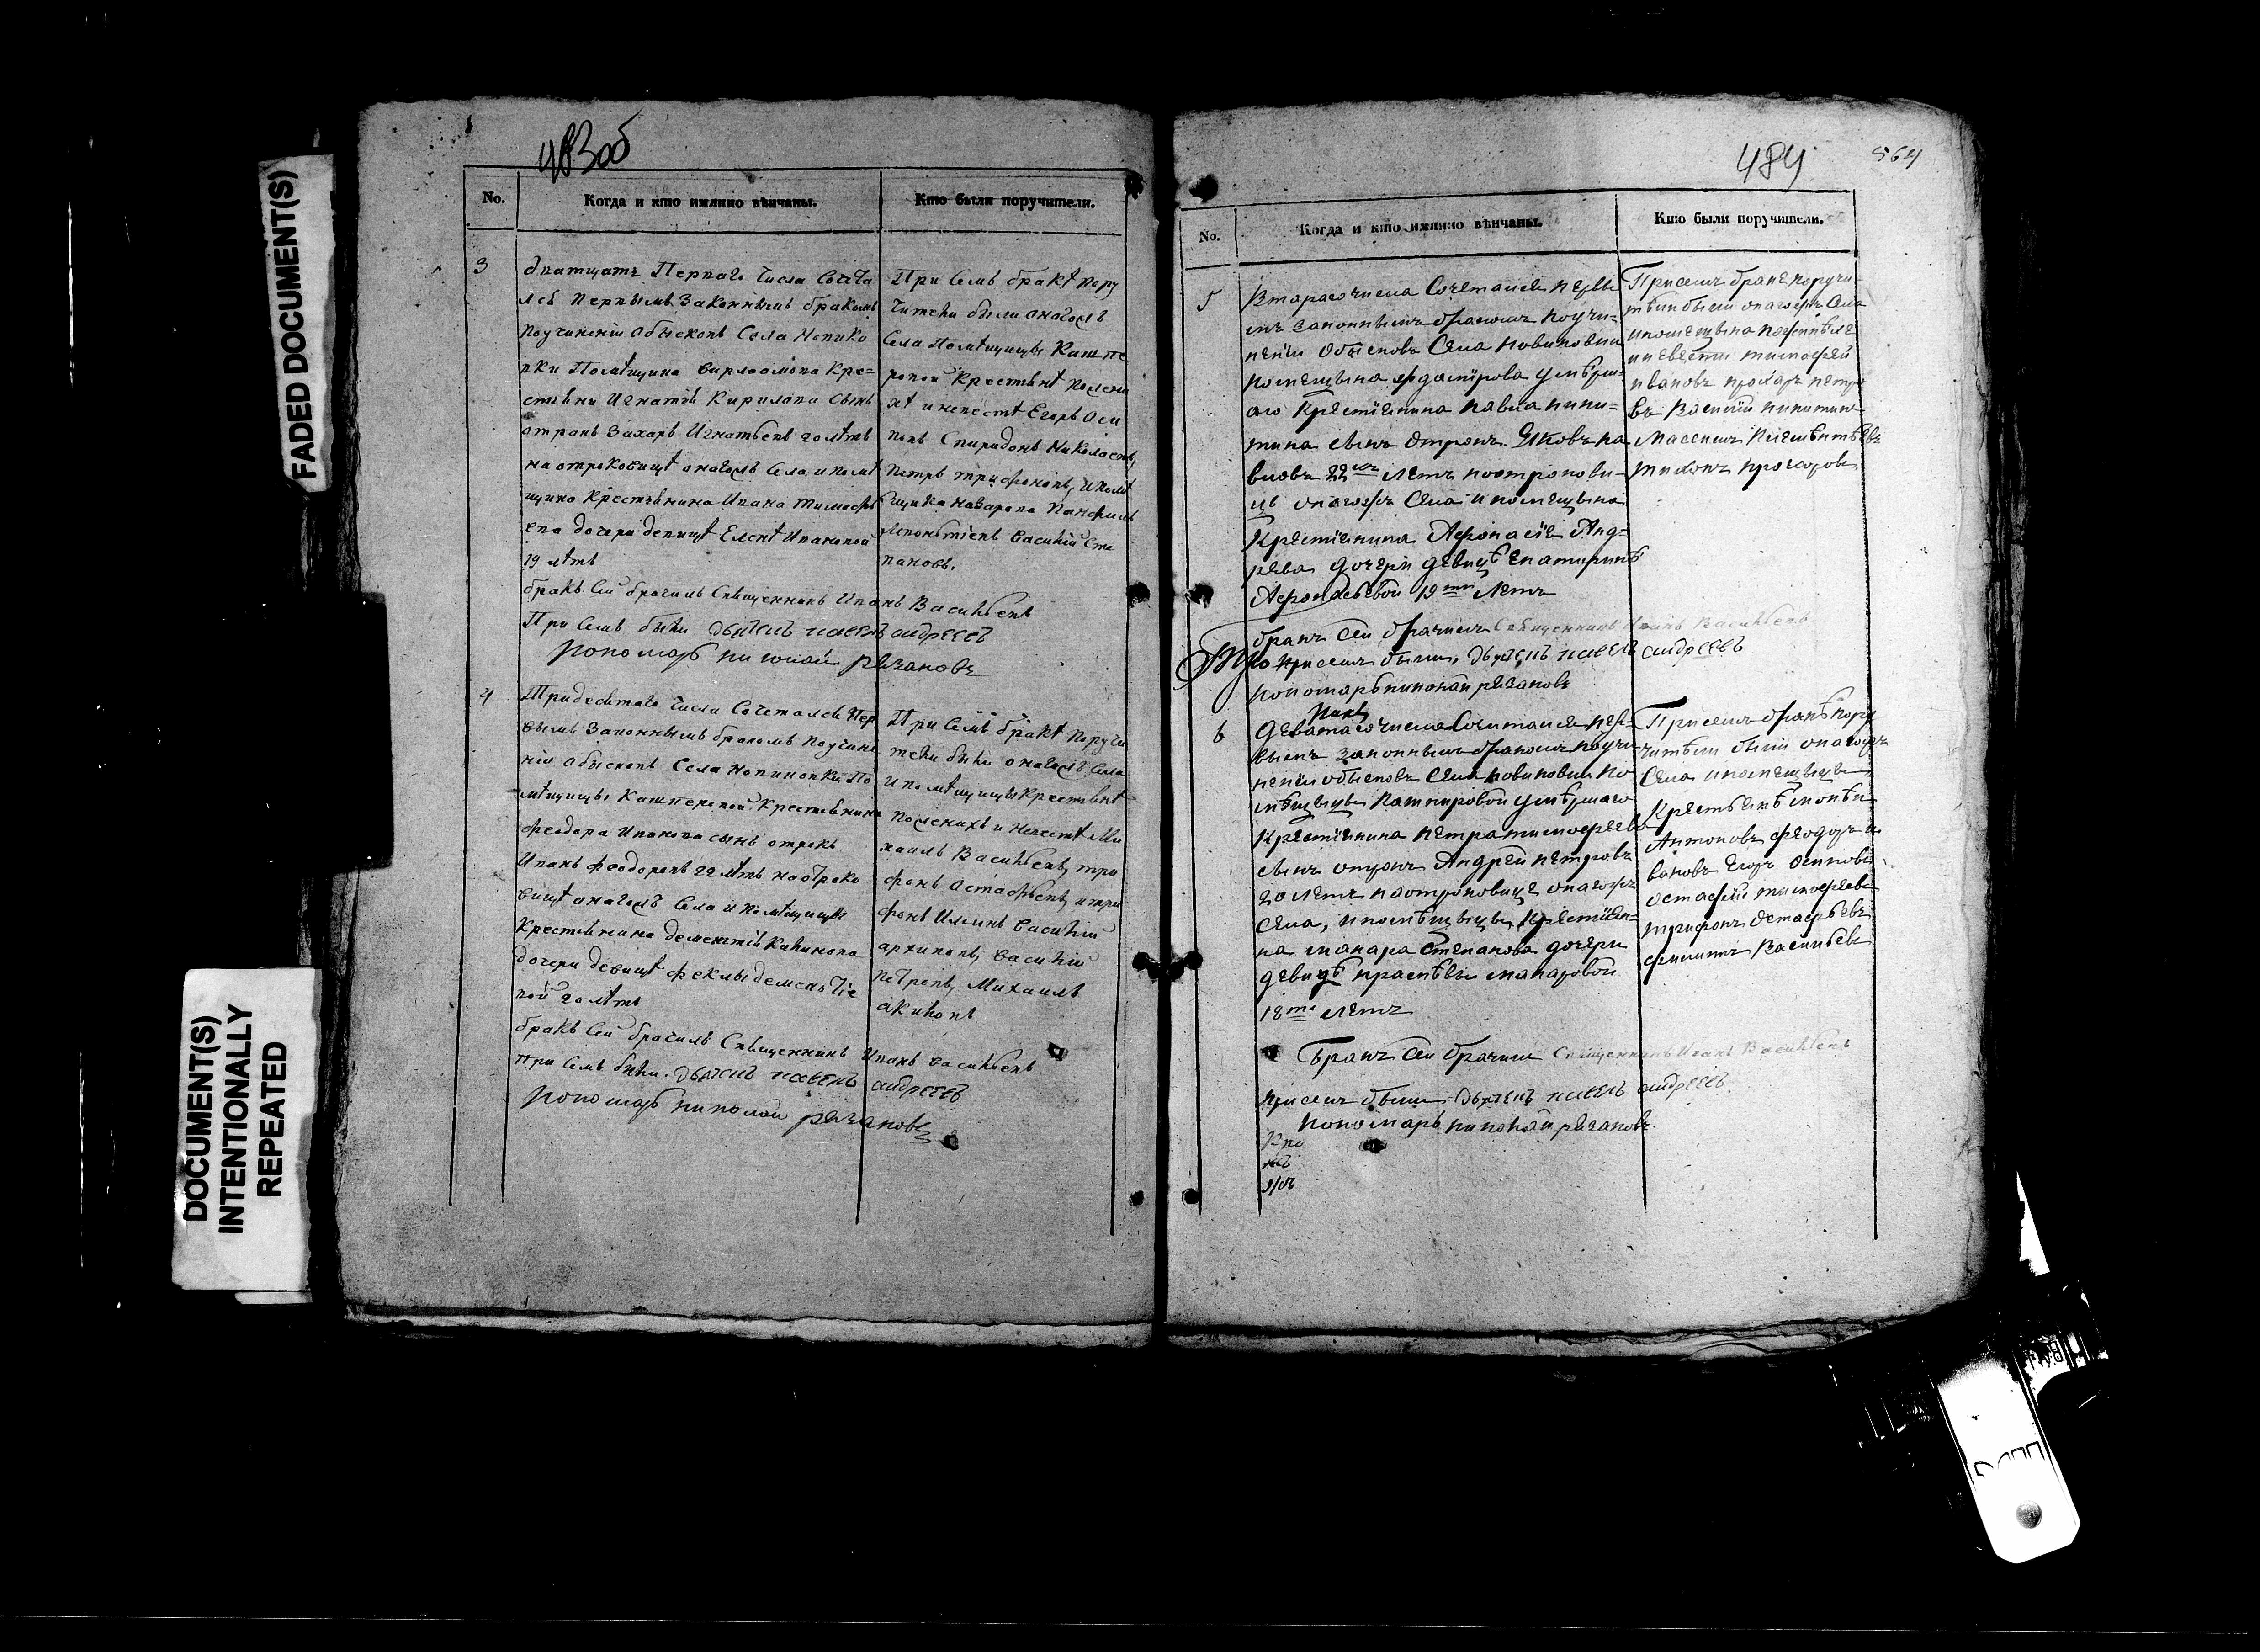 483об
No.
Когда и кто имянно вѣнчаны.
Кто были поручители.
3
дватцать Перваго числа Сочета
лсь Первымъ Законнымъ бракомъ
Поучинении обысковъ Села Новико
вки Помѣщика Кре=
стьянина Игнатія Кирилова сынъ
отракъ Захаръ Игнатьевъ 20 лѣтъ
на отроковицѣ оногожъ Села и помѣ
щика Крестьянина Ивана Тимофѣ
ева дочери девицѣ Еленѣ Ивановой
19 лѣтъ
бракъ Сей брачилъ Священникъ Иванъ Васильевъ
При Семъ были дьячекъ павелъ андреевъ
пономарь николай рязановъ
При Семъ бракѣ пору
чители были оногожъ
Села Помѣщицы Кашпе
ровой Крестьянѣ пожени
хѣ и невестѣ Егоръ Оси
повъ Спиридонъ Николаевъ,
Петръ трифоновъ, и помѣ
щика Назарова Панфилъ
Леонтіевъ Василій Сте
пановъ.
4
Тридесятаго числа Сочетался Пер
вымъ Законнымъ бракомъ поучине
ніи обысковъ Села Новиковки По
мѣщицы Кашперовой Крестьянина
феодора Иванова сынъ отрокъ
Иванъ феодоровъ 22 лѣтъ наотроко
вицѣ оногожъ Села и помѣщицы
Крестьянина дементія Калинова
дочери девицѣ феклы дементіе
вой 20 лѣтъ
бракъ Сей брачилъ Священникъ Иванъ Васильевъ
при Семъ были. дьячекъ павелъ андреевъ
пономарь николай рязановъ
При Семъ бракѣ поручи
тели были оногожъ Села
и помѣщицы Крестьянѣ
поженихѣ и Невестѣ Ми
хаилъ Васильевъ, три
фонъ Остафьевъ, и три
фонъ Ильинъ Василій
архиповъ, Василій
Петровъ, Михаилъ
акиловъ
484
564
No.
Когда и кто имянно вѣнчаны.
Кто были поручители.
5
Втараго числа Сочетался первы
мъ законнымъ бракомъ поучи=
неніи обысковъ Села новиковки
помещика умерш=
аго Крестіянина павла ники=
тина сынъ отрокъ Яковъ па
вловъ 22 лѣтъ наотрокови=
цѣ оногожъ Села и помещика
Крестіянина Афонасіе Анд=
рѣева дочери девицѣ Екатиринѣ
Афонасьевой 19 лѣтъ
бракъ сей брачилъ Священникъ Иванъ Васильевъ
при семъ были. дьячекъ павелъ андреевъ
пономарь николай рязановъ
При семъ бракѣ поручи=
тели были оногожъ Села
и помещика поженихѣ
и невести тимофей
ивановъ прохаръ петро
въ Василій никитинъ
тихонъ прохоровъ
6
Деватаго числа Сочитался пер=
вымъ законнымъ бракомъ поучи
неніи обысковъ Села новиковки по
мѣщицы Кашпировой умершаго
Крестіянина петра тимофеева
сынъ отрокъ Андрей петровъ
20 лѣтъ наотроковице оногожъ
Села, и помѣщицы, Крестіян=
на макара Степанова дочери
девицѣ прасковьи макаровой
18 лѣтъ
Бракъ сей брачилъ Священникъ Иванъ Васильевъ
при семъ были дьячекъ павелъ андреевъ
пономарь николай рязановъ
При семъ бракѣ пору
чители были оногожъ
Села и помещицы
Крестьянѣ
Антоновъ феодоръ и
вановъ Егоръ Осиповъ
остафій тимофеевъ
трифонъ Остафьевъ
филипъ Васильевъ
FADED DOCUMENT(S)
DOCUMENT(S)
INTENTIONALLY
REPEATED